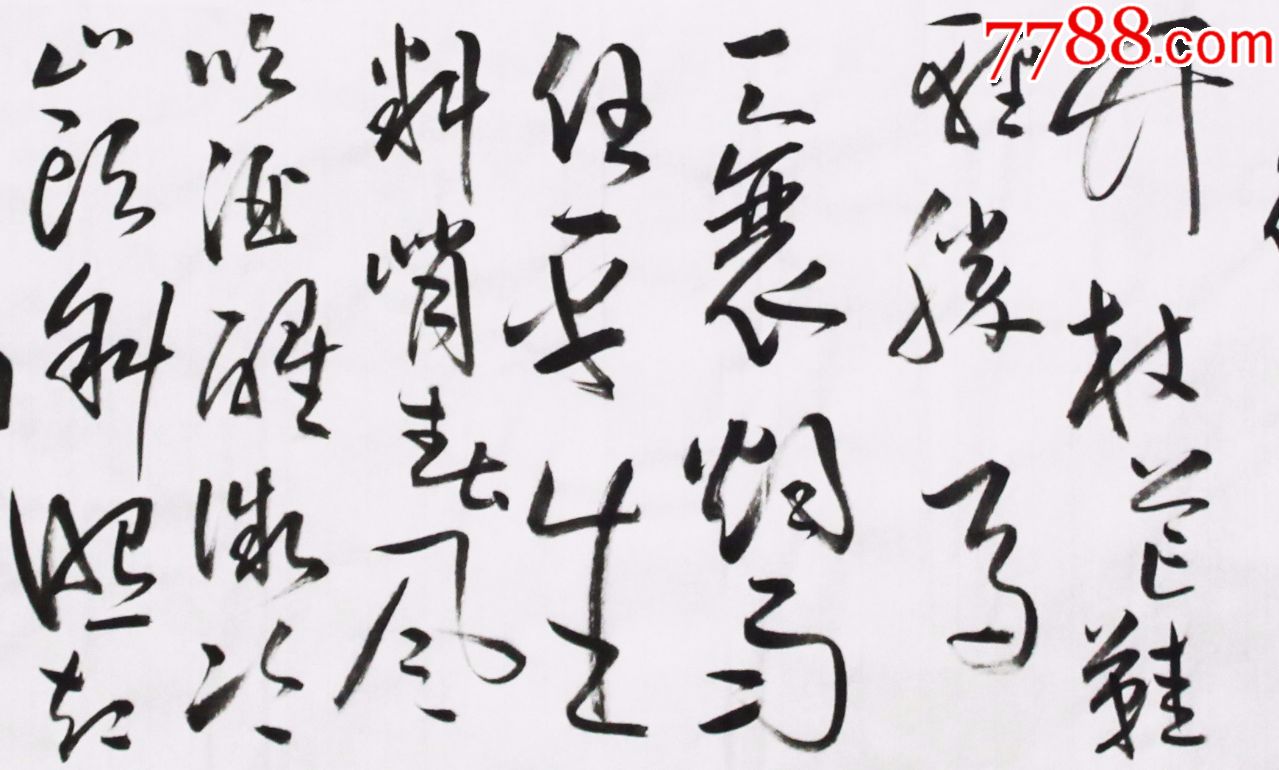 7788.com
竹杖芒鞋
輕勝馬
一蓑烟雨
任平生
料峭春風
吹酒醒微冷
山頭斜照却